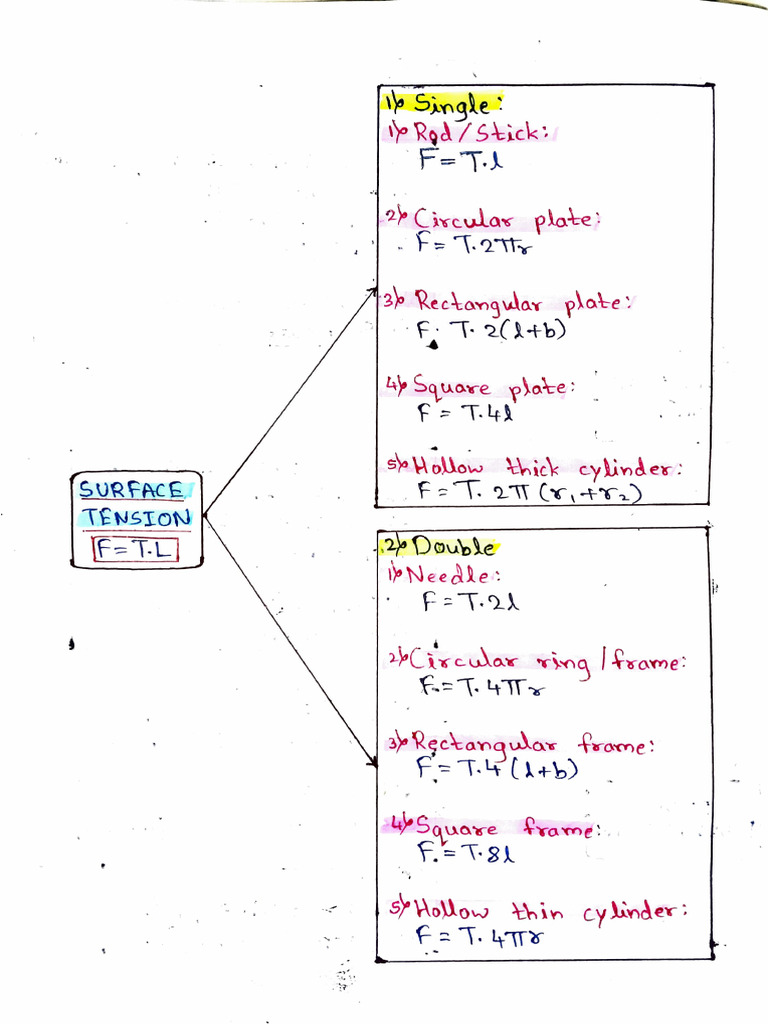 SURFACE
TENSION
F=T.L
1) Single:
1) Rod/Stick:
F=T.l
2) Circular plate:
F=T.2πr
3) Rectangular plate:
F. T.2(l+b)
4) Square plate:
F=T.4l
5) Hollow thick cylinder:
F=T.2π(r₁+r₂)
2) Double
1) Needle:
F=T.2l
2) Circular ring/frame:
F.=T.4πr
3) Rectangular frame:
F=T.4(l+b)
4) Square frame:
F.=T.8l
5) Hollow thin cylinder:
F=T.4πr